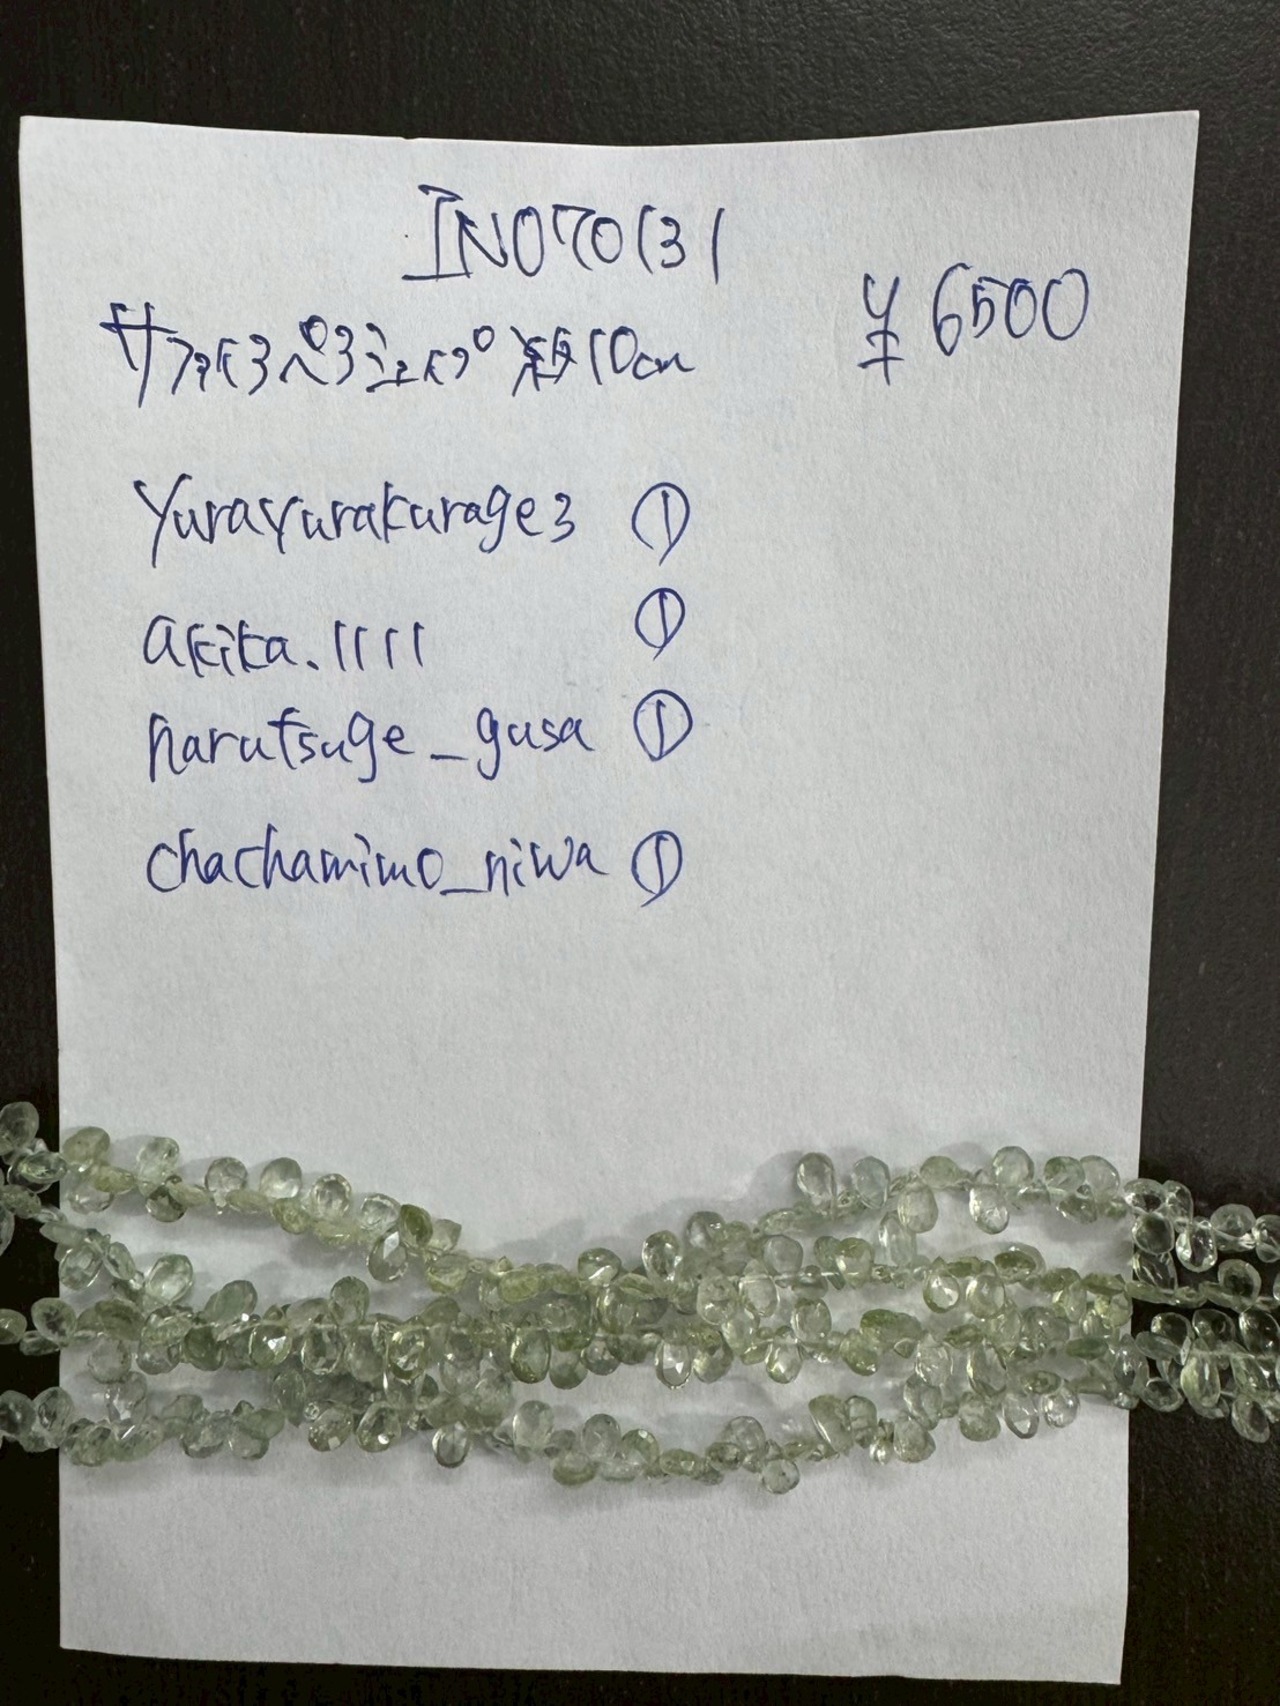 IN070131
¥6500
サファイヤペヤシェイプ 約10cm
yurayurakurage3 ①
akika.1111 ①
narutsuge_gusa ①
chachamimo_niwa ①